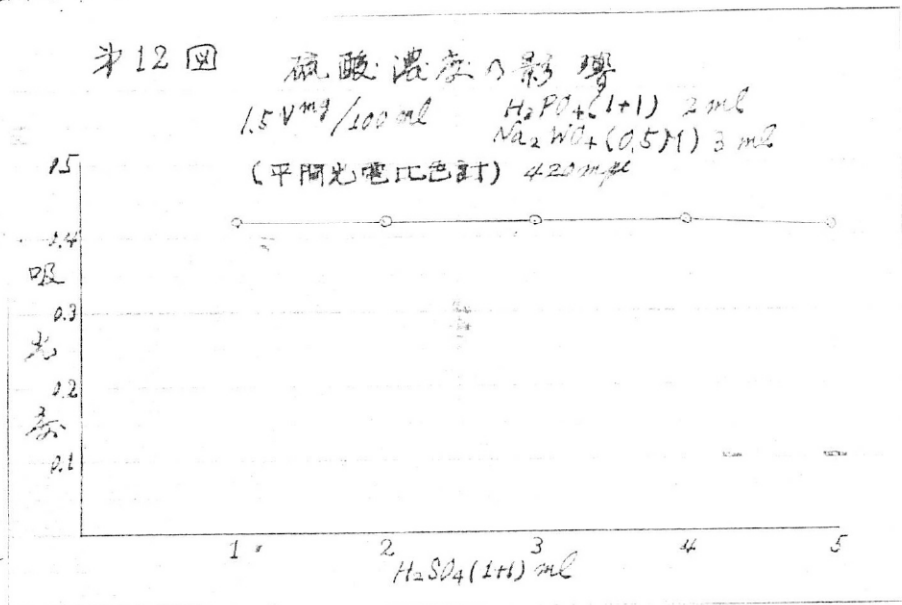 第12図 硫酸濃度の影響
1.5 V mg/100ml H₃PO₄(1+1) 2ml
Na₂WO₄(0.5M) 3ml
(平間光電比色計) 420mμ
0.5
0.4
0.3
0.2
0.1
吸光度
1 2 3 4 5
H₂SO₄(1+1) ml